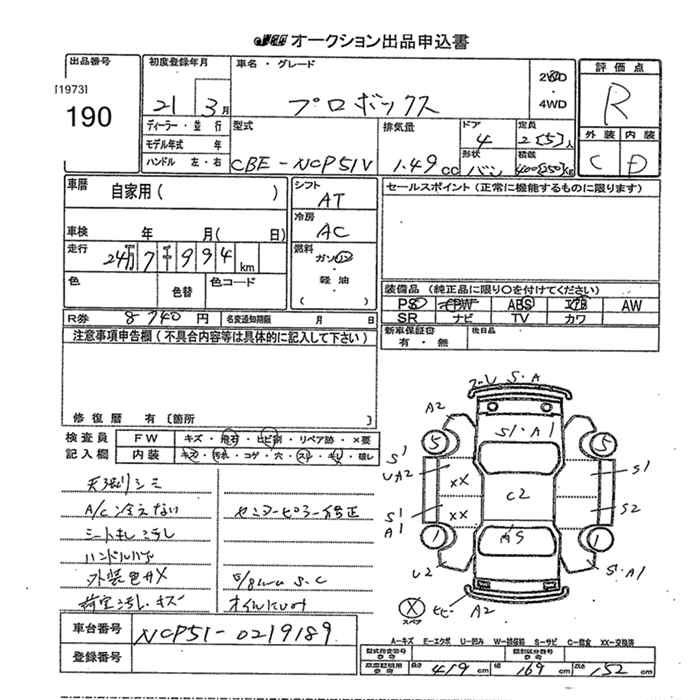 オークション出品申込書
出品番号
[1973]
190
初度登録年月
21 3月
車名・グレード
プロボックス
2WD
・
4WD
評価点
R
外装 内装
C D
ディーラー・並行
モデル年式 年
ハンドル 左・右
型式
CBE-NCP51V
排気量
1.49 cc
ドア
4
形状
バン
定員
2[5]人
積載
400[250]kg
車歴
自家用( )
車検 年 月( 日)
走行
24万7千994km
色
色替
色コード
シフト
AT
冷房
AC
燃料
ガソリン
・
軽油
( )
セールスポイント(正常に機能するものに限ります)
装備品(純正品に限り○を付けてください)
PS PW ABS エアB AW
SR ナビ TV カワ
R券 8740円
名変通知期限 月 日
新車保証書
有・無
後日品
注意事項申告欄(不具合内容等は具体的に記入して下さい)
修復歴 有[箇所 ]
検査員
記入欄
FW キズ・飛石・ヒビ割・リペア跡・×要
内装 キズ・汚れ・コゲ・穴・スレ・キレ・破レ
天張リシミ
A/C冷えない
シートキレ汚レ
ハンドルハゲ
外装色ボケ
荷室汚レ・キズ
センターピラー修正
オイルにじみ
車台番号
NCP51-0219189
登録番号
A2
S・A
S1・A1
5
5
S1
UA2
XX
XX
S1
A1
C2
S1
S2
1
1
U2
S・A1
ヒビ
A2
X
スペア
A-キズ E-エクボ U-凹み W-補修跡 S-サビ C-腐食 XX-交換済
型式指定番号
類別区分番号
車庫証明用 長さ 419 cm 幅 169 cm 高さ 152 cm